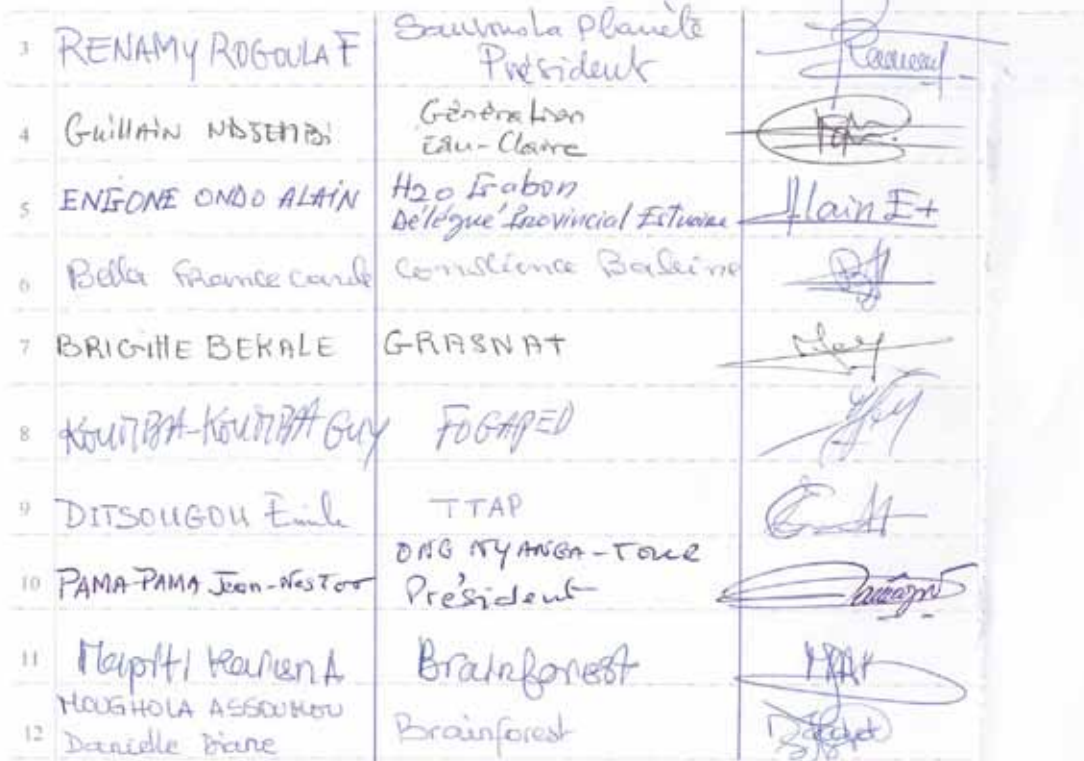 3 RENAMY ROGOULA F Sauvons la Planète
Président
4 Guillain NDJEMBI Génération
Eau-Claire
5 ENGONE ONDO ALAIN H2O Gabon
Délégué Provincial Estuaire Alain E+
6 Bella France carole Conscience Baleine
7 BRIGITTE BEKALE GRASNAT
8 KOUMBA-KOUMBA GUY FOGAPED
9 DITSOUGOU Emile TTAP
10 PAMA-PAMA Jean-Nestor ONG NYANGA-TOUR
Président
11 Karen A Brainforest
12 MOUGHOLA ASSOUMOU
Danielle Diane Brainforest